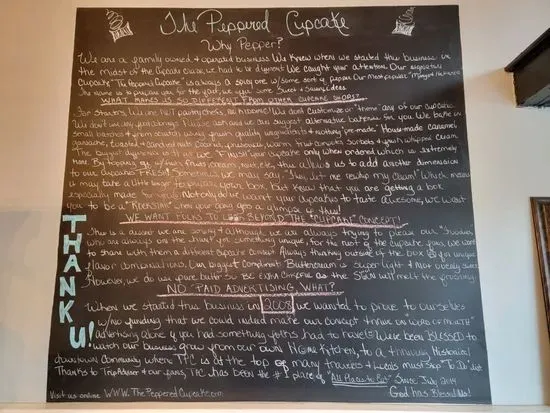 The Peppered Cupcake
Why Pepper?
We are a family owned & operated business. We knew when we started this business in
the midst of the cupcake craze, we had to be different. We caught your attention. Our signature
Cupcake "The Peppered Cupcake" is always a spice one w/ some sort of pepper. Our most popular "Midnight
The name is to prepare you for the
WHAT MAKES US SO DIFFERENT FROM OTHER CUPCAKE SHOPS?
For starters, We are not pastry chefs, no biggie! We don't customize or "theme" any of our cupcakes.
We don't do any fondant. Please ask and we can suggest alternative bakeries for you. We bake in
small batches & from scratch using quality ingredients & nothing "pre-made". House-made caramel,
ganache, toasted & candied nuts, coconut, preserves, warm fruit compotes, sorbets & fresh whipped cream.
The biggest difference is that we finish your cupcake only when ordered which is extremely
here. By topping this allows us to add another dimension
to our cupcakes FRESH! Sometimes we may say, "Hey, let me rewhip my cream!" Which means
it may take a little longer to prepare your box, but know that you are getting a box
especially made for you. Not only do we want your cupcakes to taste awesome, we want
you to be a "ROCKSTAR" when your gang gets a glimpse of this!
WE WANT FOLKS TO LOOK BEYOND THE "CUPCAKE" CONCEPT!
This is a dessert we are serving & although we are always trying to please our "foodies"
who are always on the hunt for something unique, for the rest of the cupcake fans, we want
to share with them a different cupcake concept. Always thinking outside of the box & for unique
flavor combinations. Our biggest compliment. Buttercream is super light & not overly sweet.
However, we do use pure butter so be extra careful as the sun will melt the frosting!
NO PAID ADVERTISING, WHAT?
When we started this business in 2008 we wanted to prove to ourselves
w/ no funding that we could indeed make our concept thrive on "WORD OF MOUTH"
advertising alone if you had something folks had to have!! We've been BLESSED to
watch our business grow from our own Home Kitchen, to a thriving Historical
downtown Community where TPC is at the top of many travelers & Locals must stop "To Do" list.
Thanks to TripAdvisor & our fans, TPC has been the #1 place of "All Places to Eat" Since July 2014
God has Blessed Us!
Visit us online WWW.ThePepperedCupcake.com
THANK U!